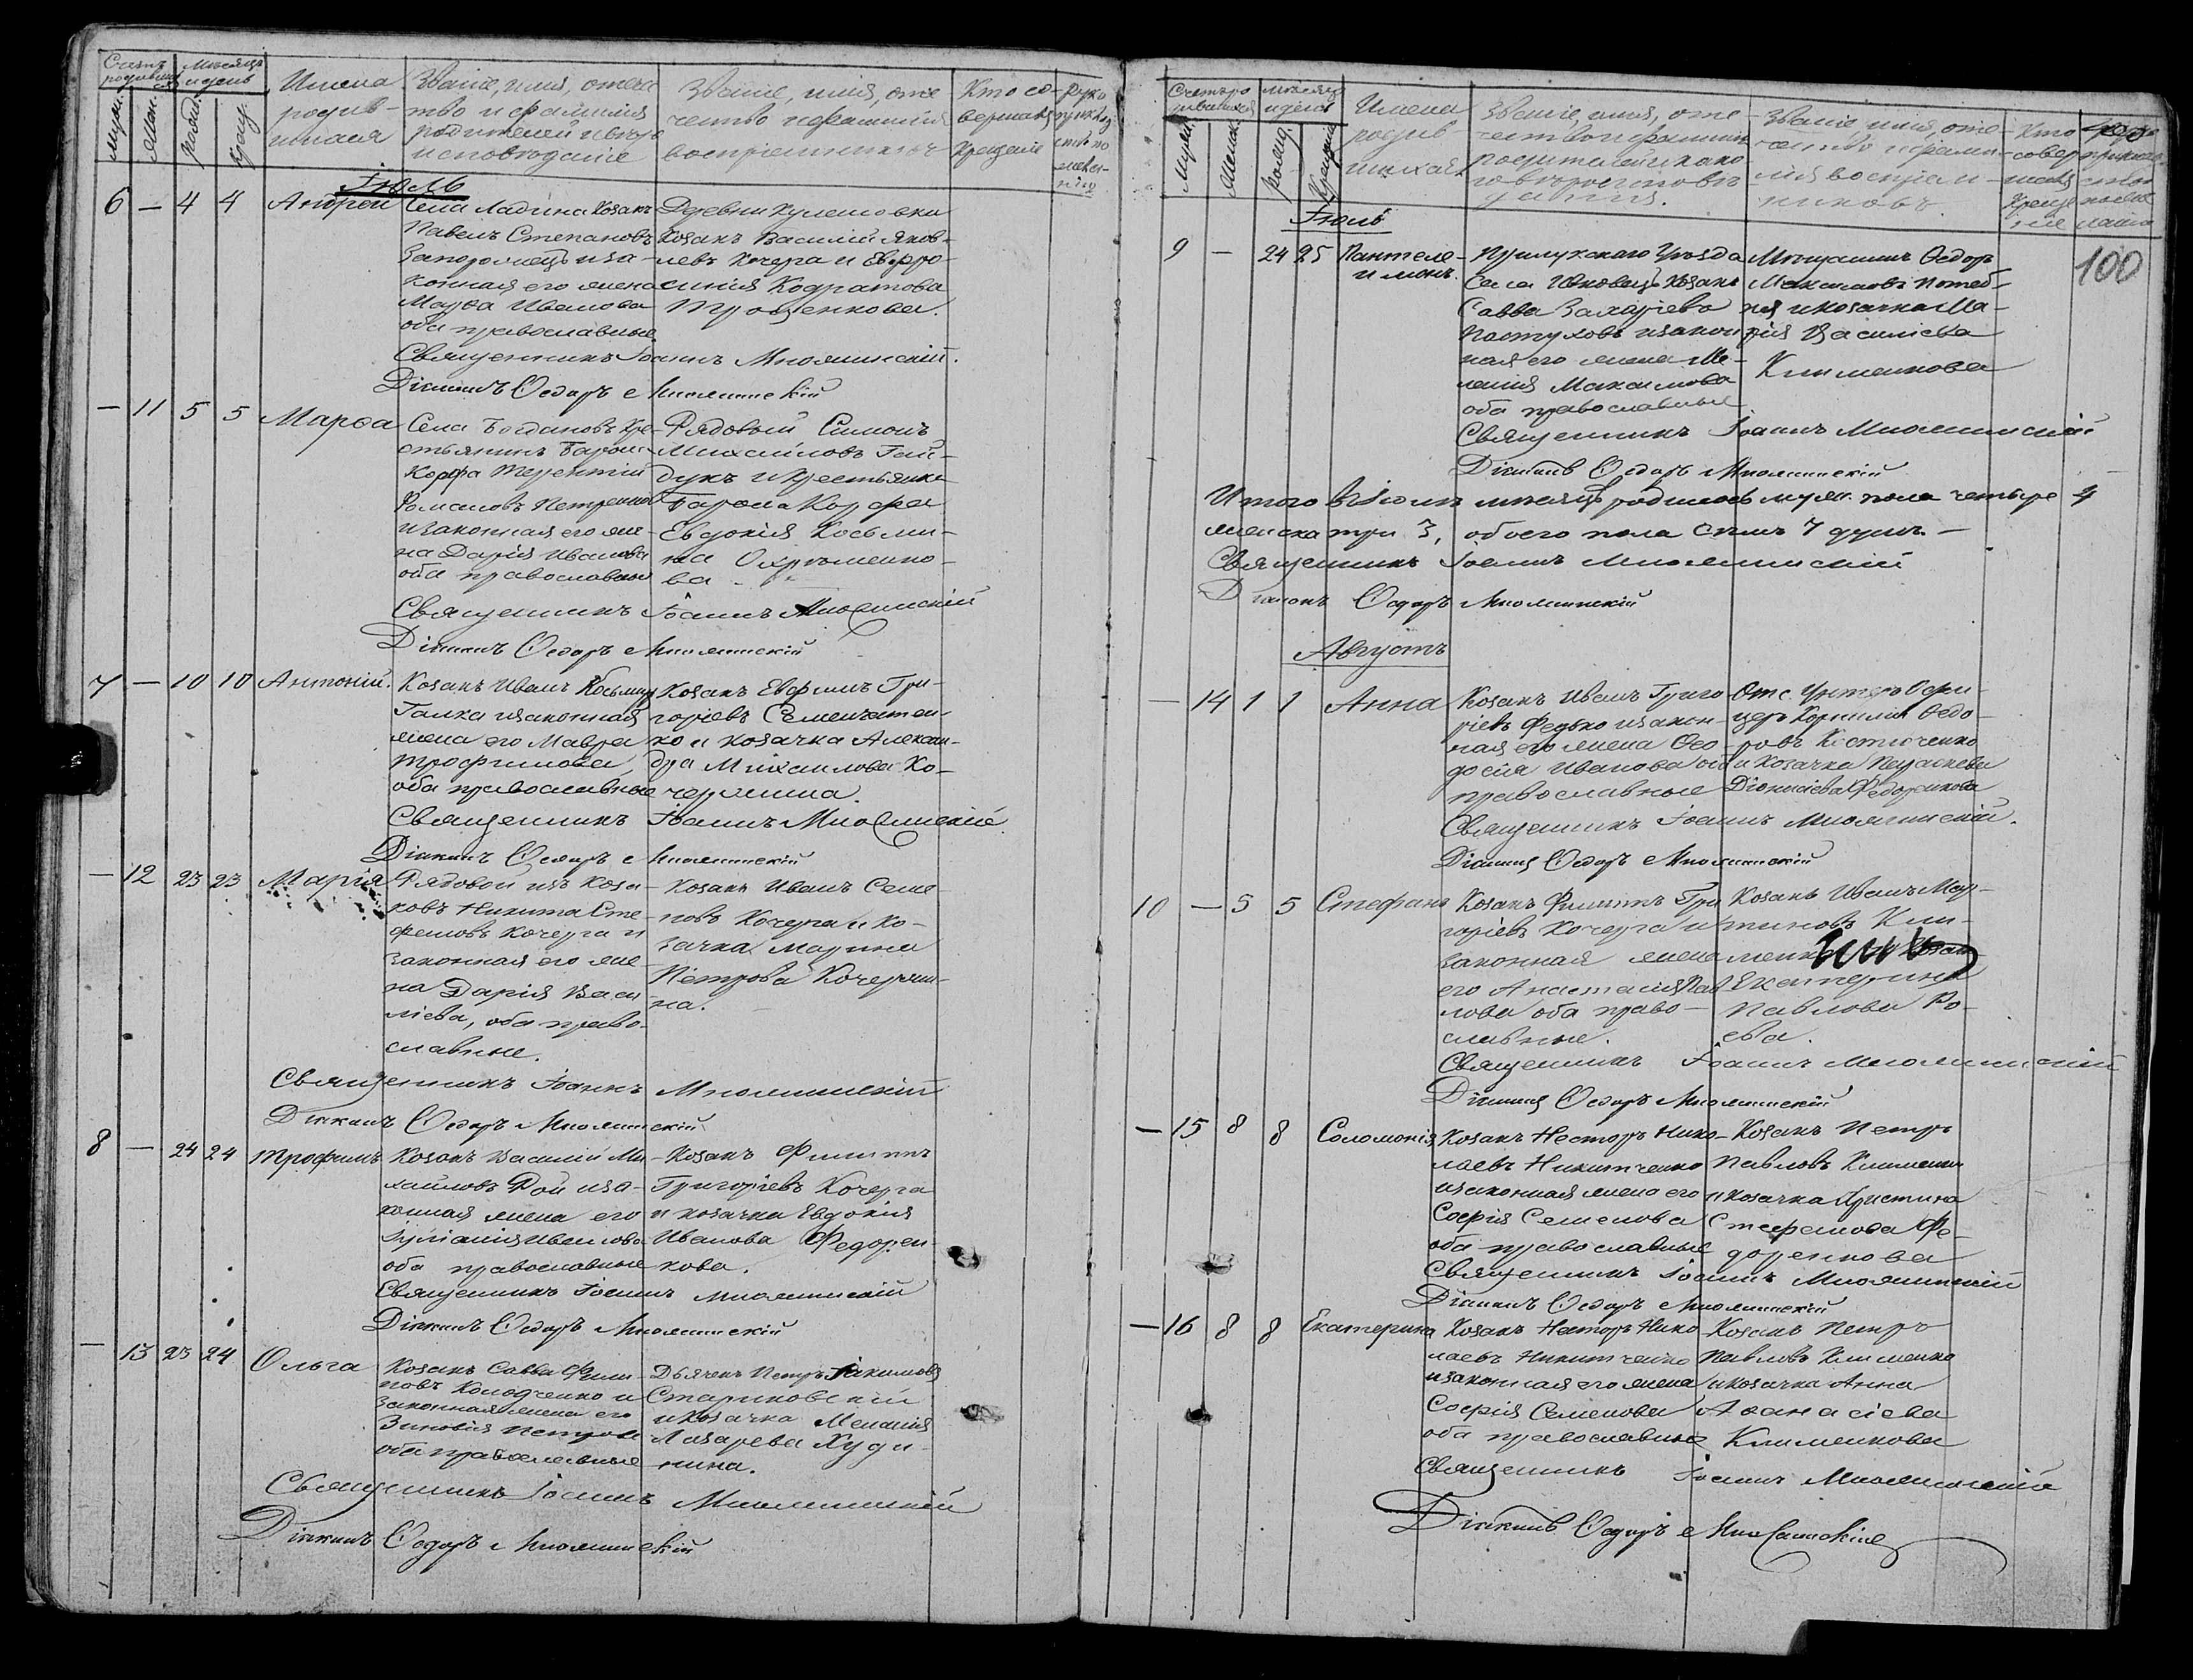 Счетъ родившихся
Мѣсяцъ и день
Имена родив-шихся
Званіе, имя, отече-
ство и фамилія
родителей и какого вѣро
исповѣданіе
Званіе, имя, оте
чество и фамилія
воспріемниковъ
Кто со-
вершалъ
крещеніе
Руко
прикла
Муж.
Жен.
Рожд.
Крещ.
Іюль
6 — 4 4 Андрей
Села Ладина Козакъ
Павелъ Степановъ
Запорожецъ и за-
конная его жена
Марѳа Иванова
оба православные
Деревни Кулешовки
Козакъ Василій Яков-
левъ Кочерга и Евфро-
синія Кодратова
Трощенкова.
Священникъ Іоаннъ Множинскій.
Діаконъ Ѳедоръ Множинскій
— 11 5 5 Марѳа
Села Богдановъ Кре-
стьянинъ Барона
Корфа Терентій
Романовъ Петренко
и законная его же-
на Дарія Иванова
оба православные
Рядовый Симонъ
Михайловъ Гай-
дукъ и крестьянка
Барона Корфа
Евдокія Косьми-
на Охрѣменко-
ва.
Священникъ Іоаннъ Множинскій
Діаконъ Ѳедоръ Множинскій
7 — 10 10 Антоній.
Козакъ Иванъ Косьминъ
Галка и законная
жена его Мавра
Трофимова,
оба православные
Козакъ Евфимъ Гри-
горіевъ Семенчатен-
ко и козачка Алексан-
дра Михаилова Ко-
чержина.
Священникъ Іоаннъ Множинскій.
Діаконъ Ѳедоръ Множинскій
— 12 23 23 Марія
Рядовой изъ Коза-
ковъ Никита Сте-
фановъ Кочерга и
законная его же-
на Дарія Васи-
ліева, оба право-
славные.
Козакъ Иванъ Семе-
новъ Кочерга и Ко-
зачка Марина
Петрова Кочержи-
на.
Священникъ Іоаннъ Множинскій
Діаконъ Ѳедоръ Множинскій
8 — 24 24 Трофимъ
Козакъ Василій Ми-
хайловъ Рой и за-
конная жена его
Іуліанія Иванова
оба православные
Козакъ Филиппъ
Григоріевъ Кочерга
и козачка Евдокія
Иванова Федорен-
кова.
Священникъ Іоаннъ Множинскій
Діаконъ Ѳедоръ Множинскій
— 13 23 24 Ольга
Козакъ Савва Фили-
повъ Колодченко и
законная жена его
Зиновія Петрова
оба православные
Дьячекъ Петръ Іакимовъ
Стариковскій
и козачка Меланія
Лазарева Худи-
нина.
Священникъ Іоаннъ Множинскій
Діаконъ Ѳедоръ Множинскій
Счетъ ро
дившихся
Мѣсяцъ
и день
Имена
родив
шихся.
Званіе, имя, оте-
чество и фамилія
родителей и како
го вѣроисповѣ
данія.
Званіе, имя, оте-
чество и фами-
лія воспріем-
никовъ.
Кто
совер
шалъ
креще
ніе
Муж.
Женск.
Рожд.
Крещенія
100
Іюль
9 — 24 25 Пантеле-
имонъ.
Прилукскаго Уѣзда
Села Ивковецъ Козакъ
Савва Захаріевъ
Пастуховъ и закон
ная его жена Ме-
ланія Максимова
оба православные
Мѣщанинъ Ѳедоръ
Максимовъ Потеб-
ня и козачка Ма-
рія Василіева
Клименкова
Священникъ Іоаннъ Множинскій
Діаконъ Ѳедоръ Множинскій
Итого въ Іюлѣ мѣсяцѣ родилось муж. пола четыре 4
женска три 3, обоего пола семь 7 душъ. —
Священникъ Іоаннъ Множинскій
Діаконъ Ѳедоръ Множинскій
Августъ
— 14 1 1 Анна
Козакъ Иванъ Григо-
ріевъ Федько и закон-
ная его жена Ѳео-
досія Иванова оба
православные
Отс. Унтеръ Офи-
церъ Корнилій Ѳедо-
ровъ Костюченко
и Козачка Параскева
Діонисіева Федоренкова
Священникъ Іоаннъ Множинскій.
Діаконъ Ѳедоръ Множинскій
10 — 5 5 Стефанъ
Козакъ Филиппъ Гри
горіевъ Кочерга и
законная жена
его Анастасія Пав
лова оба право-
славные.
Козакъ Иванъ Мар-
тиновъ Кли-
менко
Екатерина
Павлова Ро-
ева.
Священникъ Іоаннъ Множинскій
Діаконъ Ѳедоръ Множинскій
— 15 8 8 Соломонія
Козакъ Несторъ Нико-
лаевъ Никитченко
и законная жена его
Софія Семенова
оба православные
Козакъ Петръ
Павловъ Клименко
и козачка Христина
Стефанова Фе-
доренкова
Священникъ Іоаннъ Множинскій
Діаконъ Ѳедоръ Множинскій
— 16 8 8 Екатерина
Козакъ Несторъ Нико
лаевъ Никитченко
и законная его жена
Софія Семенова
оба православные
Козакъ Петръ
Павловъ Клименко
и козачка Анна
Аѳанасіева
Клименкова
Священникъ Іоаннъ Множинскій
Діаконъ Ѳедоръ Множинскій